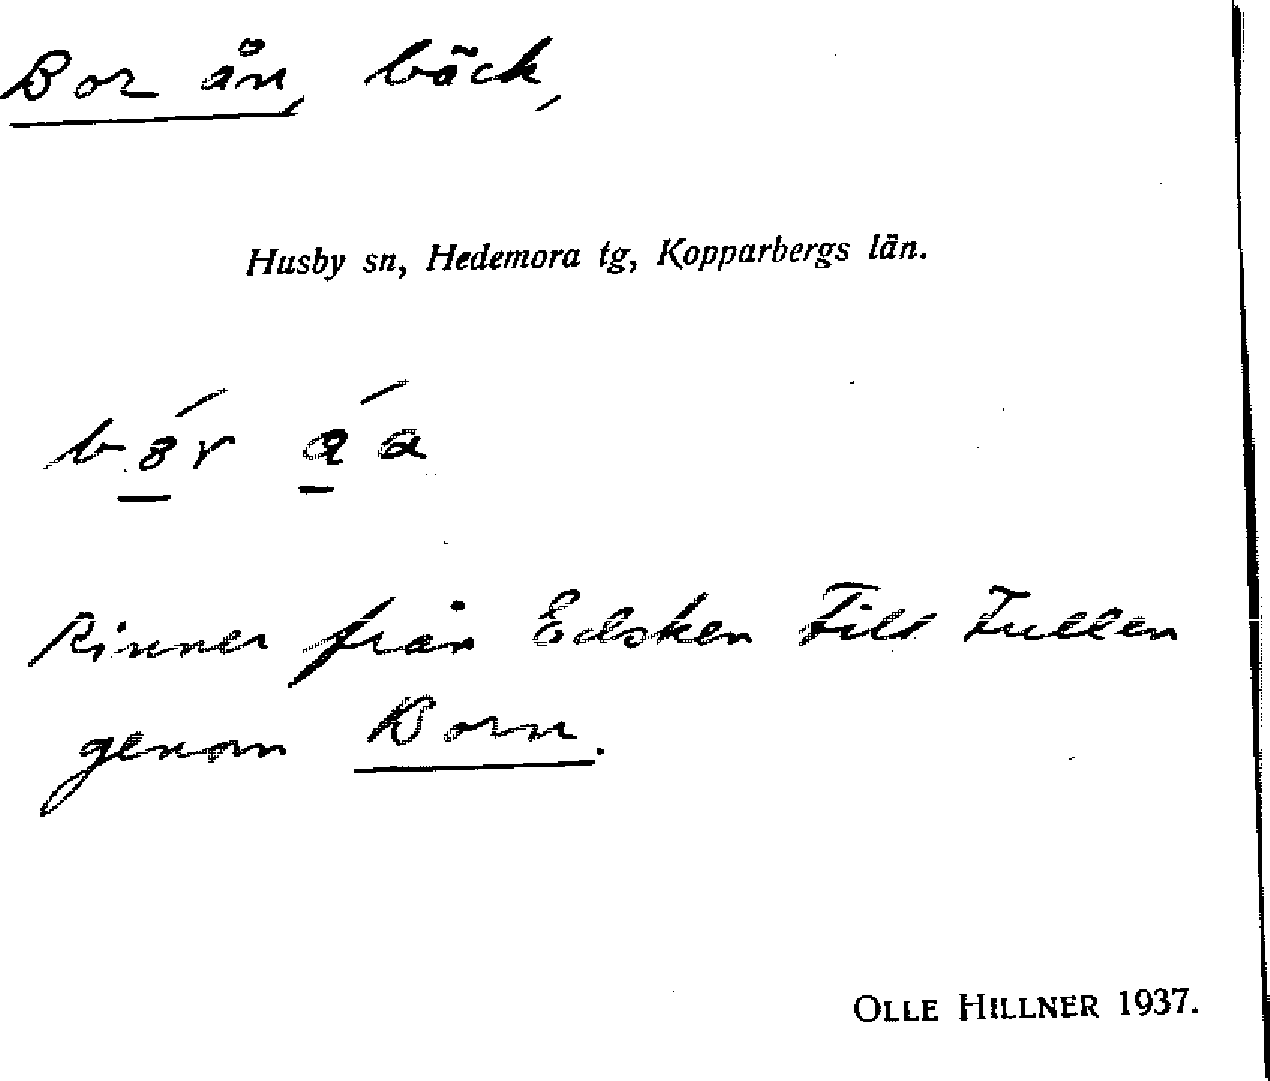 Bor ån, bäck,
Husby sn, Hedemora tg, Kopparbergs län.
Rinner från Edsken till Tullen
genom Born.
OLLE HILLNER 1937.